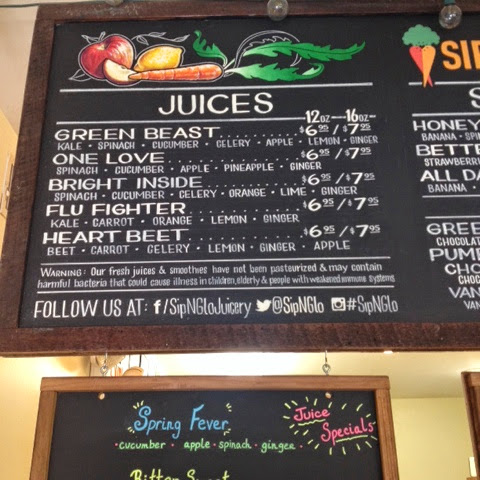 JUICES
12oz 16oz
GREEN BEAST $6.95 / $7.95
KALE • SPINACH • CUCUMBER • CELERY • APPLE • LEMON • GINGER
ONE LOVE $6.95 / $7.95
SPINACH • CUCUMBER • APPLE • PINEAPPLE • GINGER
BRIGHT INSIDE $6.95 / $7.95
SPINACH • CUCUMBER • CELERY • ORANGE • LIME • GINGER
FLU FIGHTER $6.95 / $7.95
KALE • CARROT • ORANGE • LEMON • GINGER
HEART BEET $6.95 / $7.95
BEET • CARROT • CELERY • LEMON • GINGER • APPLE
WARNING: Our fresh juices & smoothies have not been pasteurized & may contain
harmful bacteria that could cause illness in children, elderly & people with weakened immune systems
FOLLOW US AT: f/SipNGloJuicery @SipNGlo #SipNGlo
SIP
S
HONEY
BANANA • SPIN
BETTE
STRAWBERRI
ALL DA
BANANA •
GREE
CHOCOLAT
PUMP
CHO
CHOC
VAN
VAN
Spring Fever
• cucumber • apple • spinach • ginger •
Juice
Specials
Bitter Sweet